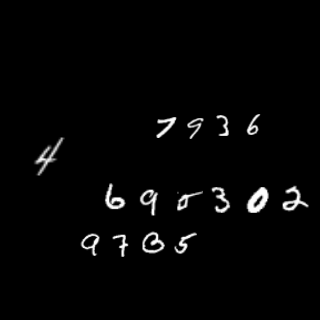 7936
4
695302
9735